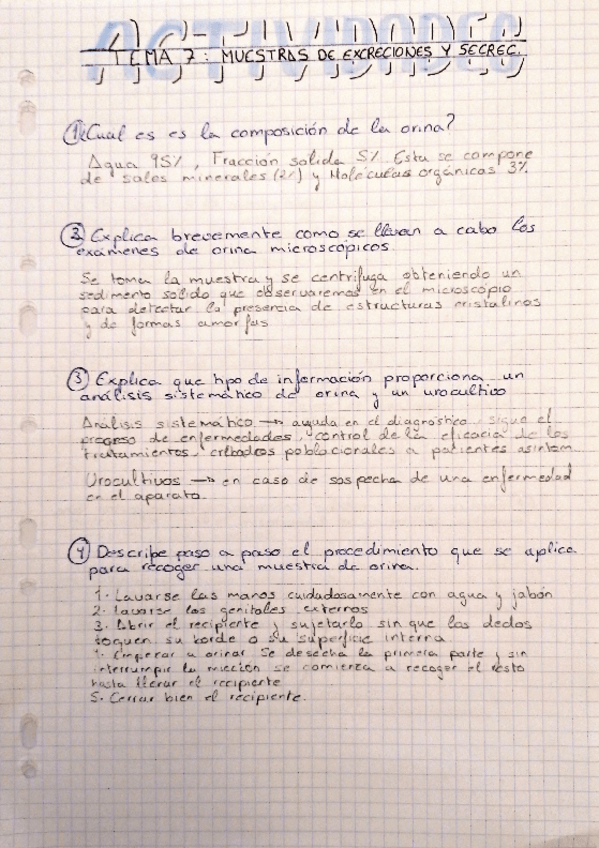 ACTIVIDADES
TEMA 7: MUESTRAS DE EXCRECIONES Y SECREC.
1 ¿Cual es es la composición de la orina?
Agua 95%, Fracción solida 5%. Esta se compone
de sales minerales (2%) y Moleculas orgánicas 3%.
2 Explica brevemente como se llevan a cabo los
exámenes de orina microscópicos.
Se toma la muestra y se centrifuga obteniendo un
sedimento solido que observaremos en el microscopio
para detectar la presencia de estructuras cristalinos
y de formas amorfas
3 Explica que tipo de información proporciona un
análisis sistemático de orina y un urocultivo
Análisis sistemático → ayuda en el diagnóstico, sigue el
progreso de enfermedades, control de la eficacia de los
tratamientos, cribados poblacionales a pacientes asintom
Urocultivos → en caso de sospecha de una enfermedad
en el aparato.
4 Describe paso a paso el procedimiento que se aplica
para recoger una muestra de orina.
1. Lavarse las manos cuidadosamente con agua y jabón
2. lavarse los genitales externos
3. Abrir el recipiente y sujetarlo sin que los dedos
toquen su borde o su superficie interna
4. Empezar a orinar. Se desecha la primera parte y sin
interrumpir la micción se comienza a recoger el resto
hasta llenar el recipiente
5. Cerrar bien el recipiente.